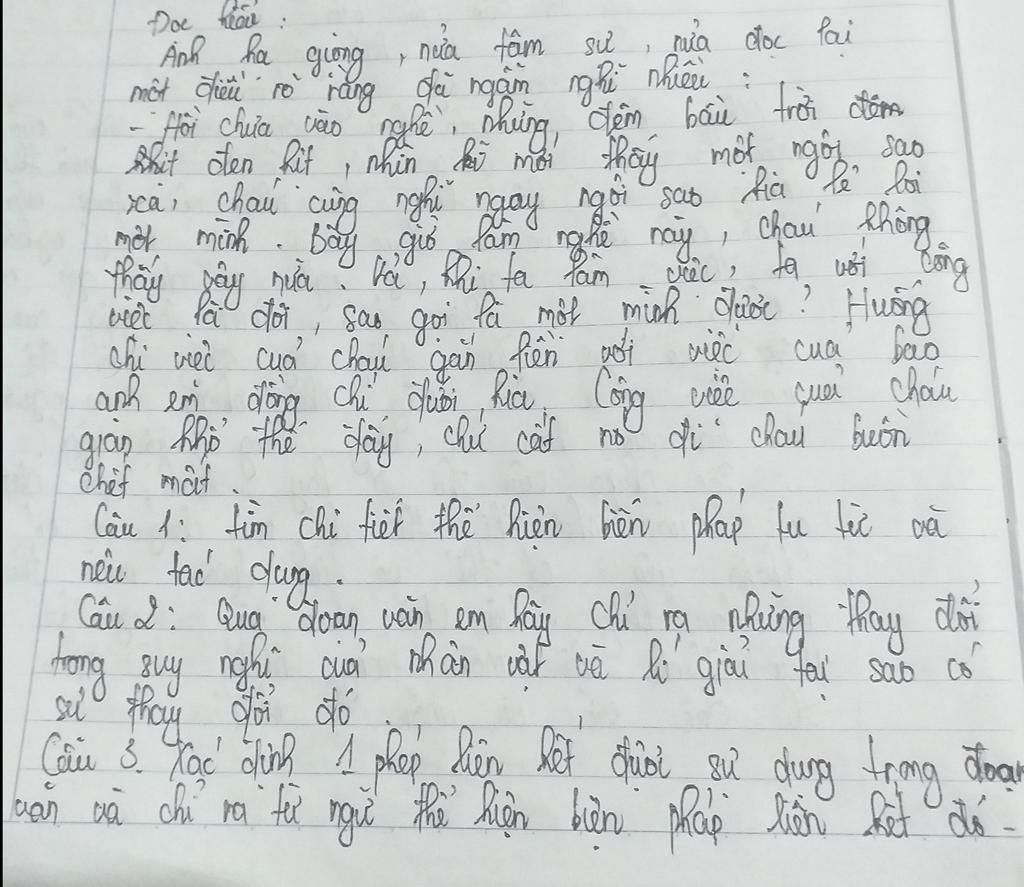 Đọc hiểu :
Anh hạ giọng, nửa tâm sự, nửa đọc lại
một điều rõ ràng đã ngẫm nghĩ nhiều :
- Hồi chưa vào nghề, những đêm bầu trời đêm
đen kịt, nhìn kĩ mới thấy một ngôi sao
xa, cháu cũng nghĩ ngay ngôi sao kia lẻ loi
một mình. Bây giờ làm nghề này, cháu không
thấy vậy nữa. Vả, khi ta làm việc, ta với công
việc là đôi, sao gọi là một mình được? Huống
chi việc của cháu gắn liền với việc của bao
anh em đồng chí dưới kia. Công việc của cháu
gian khổ thế đấy, chứ cất nó đi cháu buồn
chết mất.
Câu 1: tìm chi tiết thể hiện biện pháp tu từ và
nêu tác dụng.
Câu 2: Qua đoạn văn em hãy chỉ ra những thay đổi
trong suy nghĩ của nhân vật và lí giải tại sao có
sự thay đổi đó.
Câu 3. Xác định 1 phép liên kết được sử dụng trong đoạn
văn và chỉ ra từ ngữ thể hiện biện pháp liên kết đó -